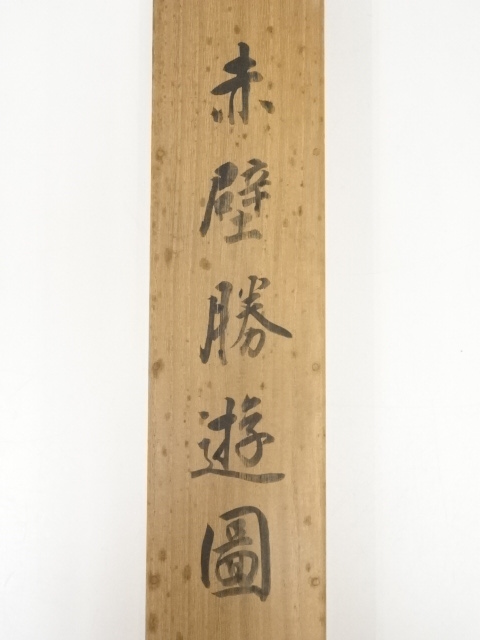 赤壁勝遊圖